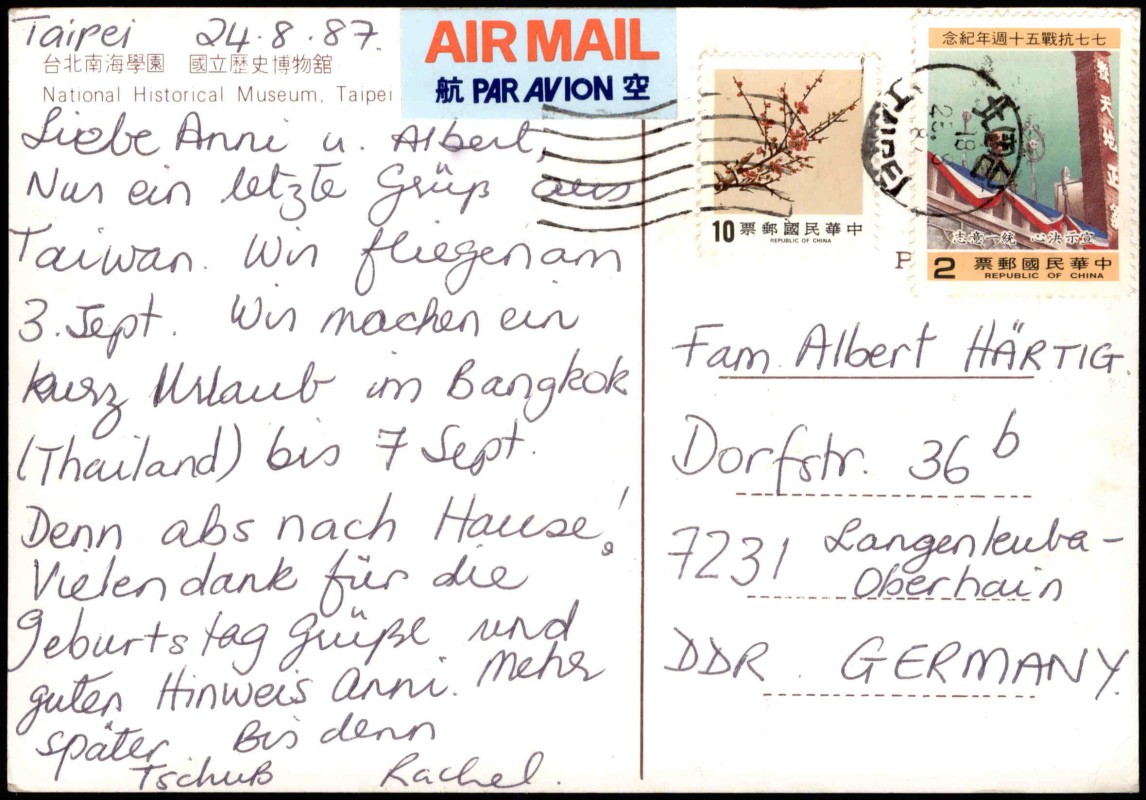 Taipei 24.8.87.
台北南海學園 國立歷史博物館
National Historical Museum, Taipei
AIR MAIL
航 PAR AVION 空
Liebe Anni u. Albert,
Nur ein letzte Grüß aus
Taiwan. Wir fliegen am
3. Sept. Wir machen ein
kurz Urlaub im Bangkok
(Thailand) bis 7 Sept.
Denn abs nach Hause!
Vielen dank für die
geburtstag grüße und
guten Hinweis Anni. Meher
später Bis denn
Tschuß Rachel.
10 票郵國民華中
REPUBLIC OF CHINA
念紀年週十五戰抗七七
志意一統 心決示宣
2 票郵國民華中
REPUBLIC OF CHINA
TAIPEI
P
Fam. Albert HÄRTIG.
Dorfstr. 36 b
7231 Langenleuba-
Oberhain
DDR. GERMANY.